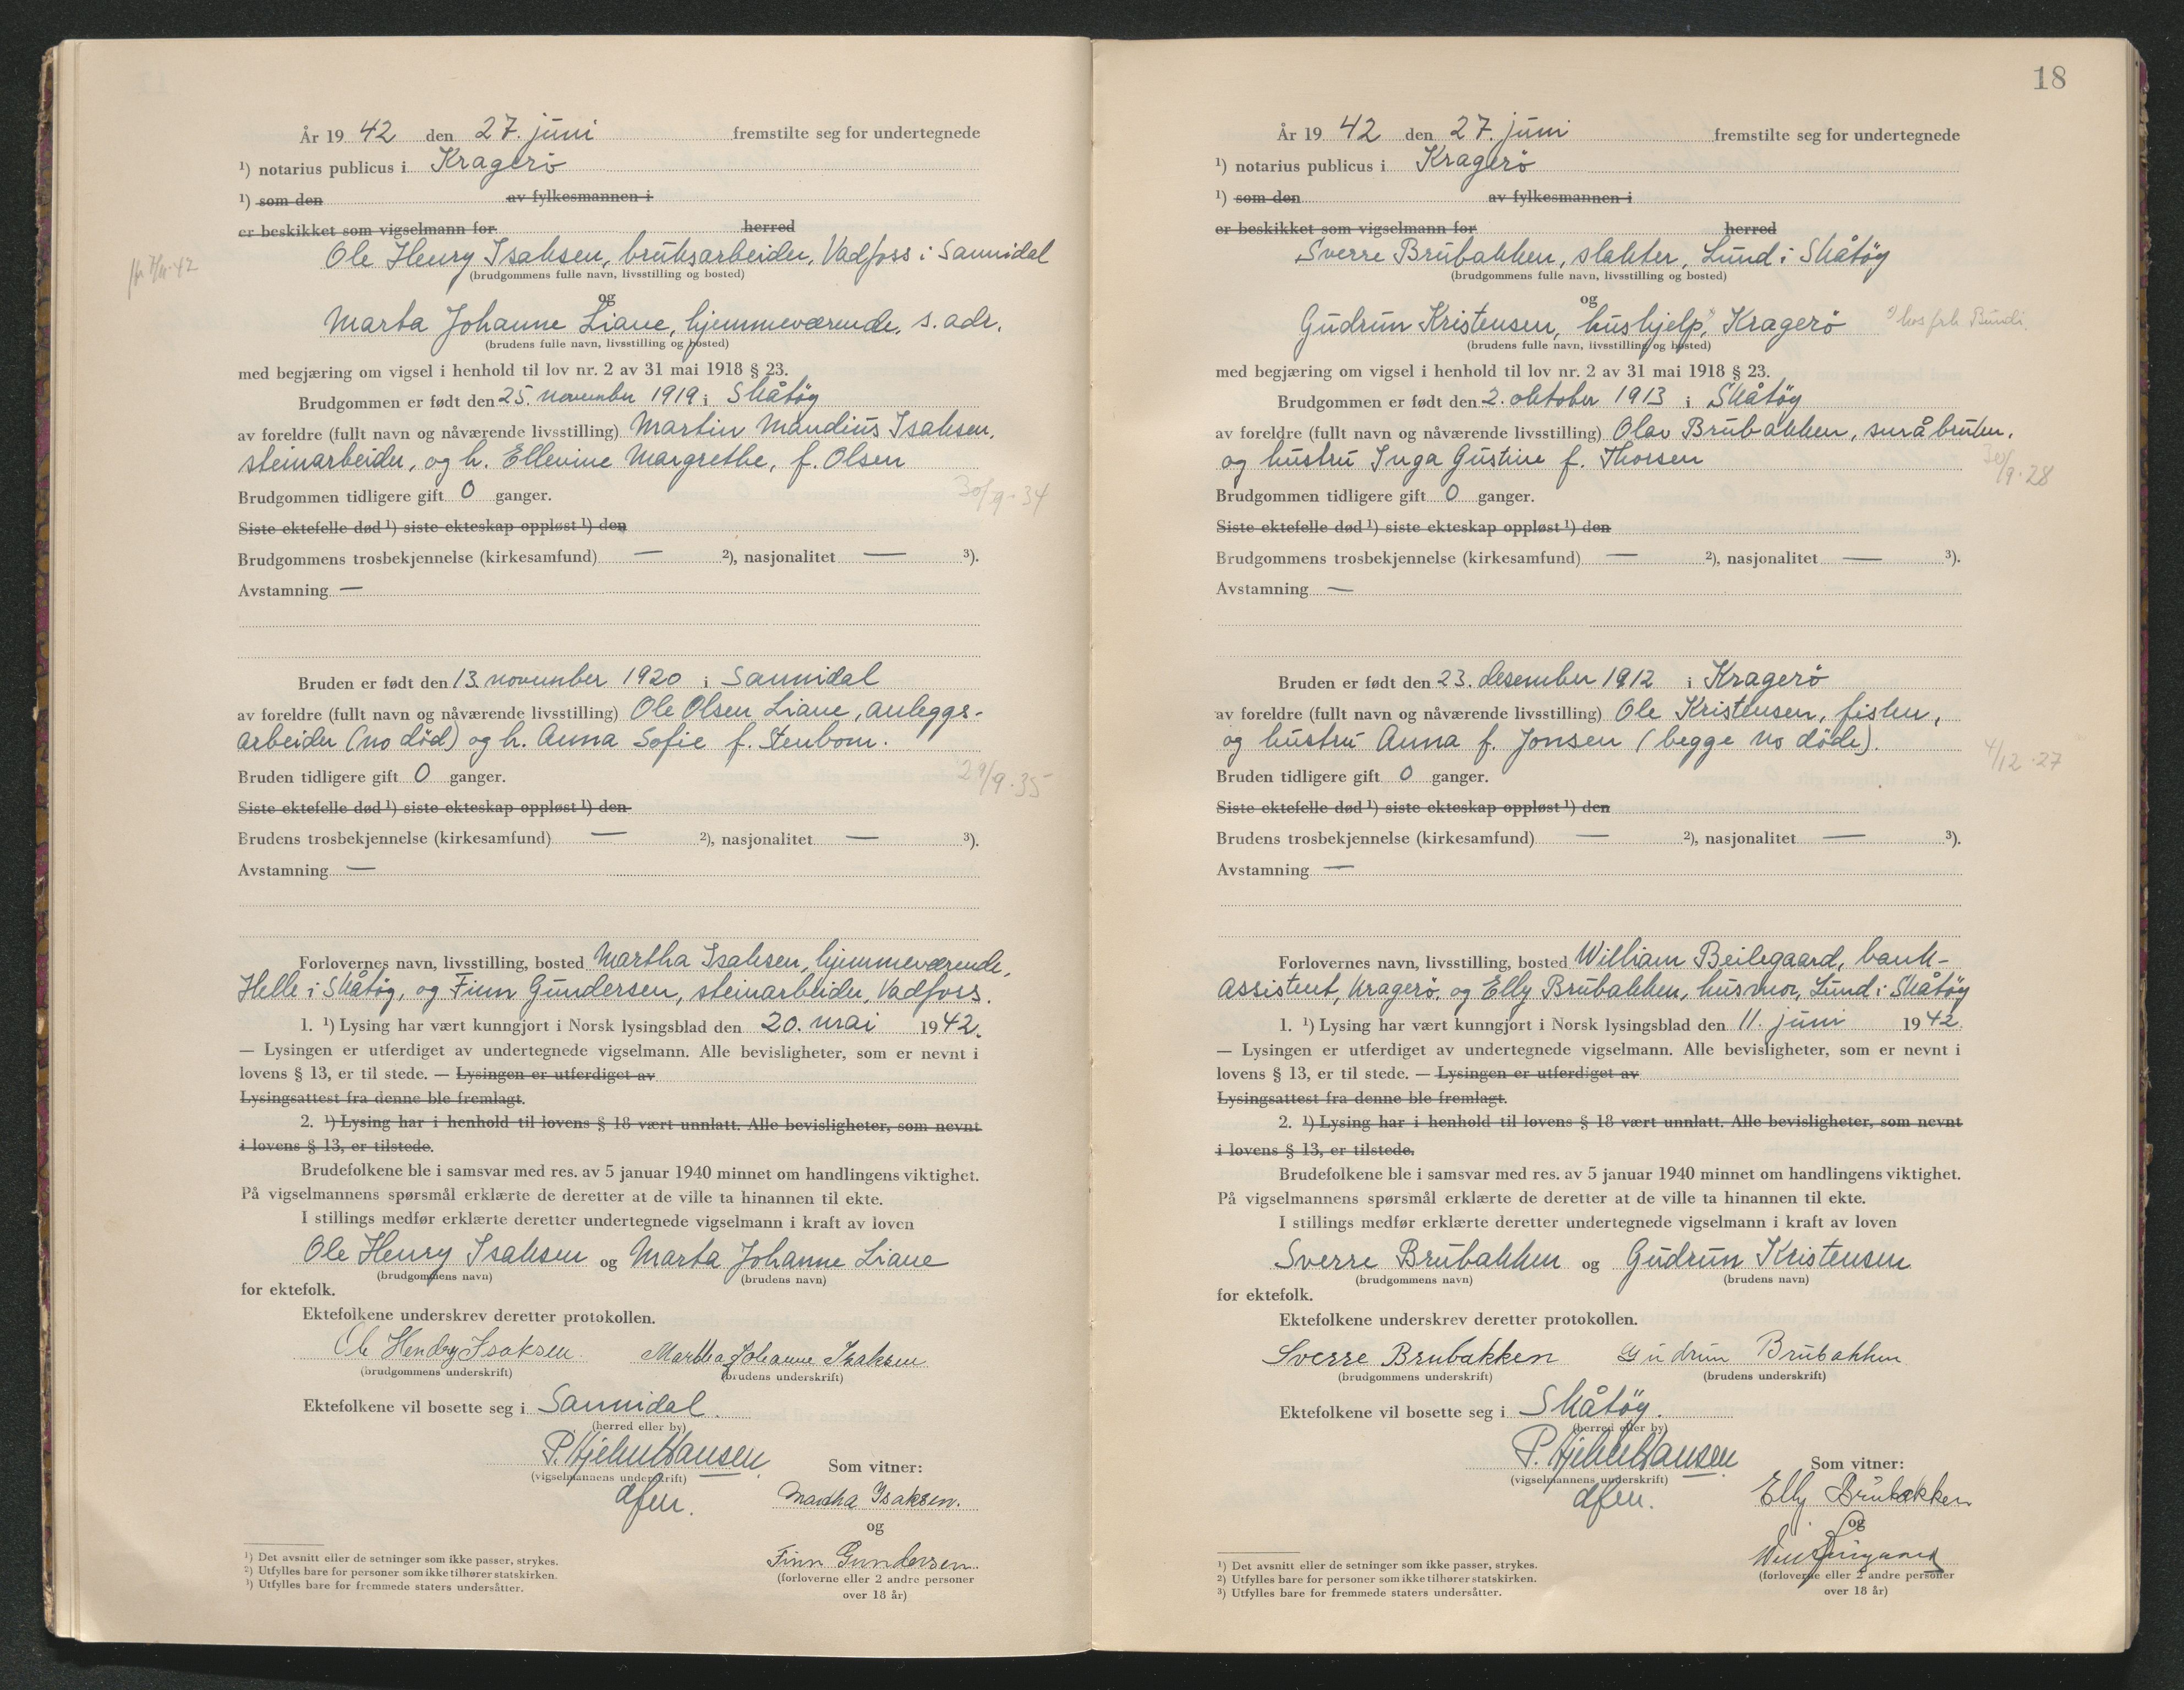 År 19 42 den 27. juni fremstilte seg for undertegnede
¹) notarius publicus i Kragerö
¹) som den av fylkesmannen i
er beskikket som vigselmann for herred
Ole Henry Isaksen, bruksarbeider, Vadfoss i Sannidal
(brudgommens fulle navn, livsstilling og bosted)
og
Marta Johanne Liane, hjemmeværende, s. adr.
(brudens fulle navn, livsstilling og bosted)
med begjæring om vigsel i henhold til lov nr. 2 av 31 mai 1918 § 23.
Brudgommen er født den 25. november 1919 i Skåtöy
av foreldre (fullt navn og nåværende livsstilling) Martin Mandius Isaksen,
steinarbeider, og h. Ellevine Margrethe, f. Olsen
Brudgommen tidligere gift 0 ganger.
30/9·34
Siste ektefelle død ¹) siste ekteskap oppløst ¹) den
Brudgommens trosbekjennelse (kirkesamfund) — ²), nasjonalitet — ³).
Avstamning —
Bruden er født den 13. november 1920 i Sannidal
av foreldre (fullt navn og nåværende livsstilling) Ole Olsen Liane, anleggs-
arbeider (no död) og h. Anna Sofie f. Stenbom.
Bruden tidligere gift 0 ganger.
29/9·35
Siste ektefelle død ¹) siste ekteskap oppløst ¹) den
Brudens trosbekjennelse (kirkesamfund) — ²), nasjonalitet — ³).
Avstamning —
Forlovernes navn, livsstilling, bosted Martha Isaksen, hjemmeværende,
Helle i Skåtöy, og Finn Gundersen, steinarbeider, Vadfoss.
1. ¹) Lysing har vært kunngjort i Norsk lysingsblad den 20. mai 1942.
— Lysingen er utferdiget av undertegnede vigselmann. Alle bevisligheter, som er nevnt i
lovens § 13, er til stede. — Lysingen er utferdiget av
Lysingsattest fra denne ble fremlagt.
2. ¹) Lysing har i henhold til lovens § 18 vært unnlatt. Alle bevisligheter, som nevnt
i lovens § 13, er tilstede.
Brudefolkene ble i samsvar med res. av 5 januar 1940 minnet om handlingens viktighet.
På vigselmannens spørsmål erklærte de deretter at de ville ta hinannen til ekte.
I stillings medfør erklærte deretter undertegnede vigselmann i kraft av loven
Ole Henry Isaksen og Marta Johanne Liane
(brudgommens navn) (brudens navn)
for ektefolk.
Ektefolkene underskrev deretter protokollen.
Ole Hendry Isaksen. Martha Johanne Isaksen
(brudgommens underskrift) (brudens underskrift)
Ektefolkene vil bosette seg i Sannidal.
(herred eller by)
P. Hjelm Hansen
(vigselmannens underskrift)
dfm.
Som vitner:
Martha Isaksen.
og
Finn Gundersen.
(forloverne eller 2 andre personer
over 18 år)
¹) Det avsnitt eller de setninger som ikke passer, strykes.
²) Utfylles bare for personer som ikke tilhører statskirken.
³) Utfylles bare for fremmede staters undersåtter.
18
År 19 42 den 27. juni fremstilte seg for undertegnede
¹) notarius publicus i Kragerö
¹) som den av fylkesmannen i
er beskikket som vigselmann for herred
Sverre Brubakken, slakter, Lund i Skåtöy
(brudgommens fulle navn, livsstilling og bosted)
og
Gudrun Kristensen, hushjelp, Kragerö
(brudens fulle navn, livsstilling og bosted)
med begjæring om vigsel i henhold til lov nr. 2 av 31 mai 1918 § 23.
Brudgommen er født den 2. oktober 1913 i Skåtöy
av foreldre (fullt navn og nåværende livsstilling) Olav Brubakken, småbruker,
og hustru Inga Gustine f. Thorsen
30/9·28
Brudgommen tidligere gift 0 ganger.
Siste ektefelle død ¹) siste ekteskap oppløst ¹) den
Brudgommens trosbekjennelse (kirkesamfund) — ²), nasjonalitet — ³).
Avstamning —
Bruden er født den 23. desember 1912 i Kragerö
av foreldre (fullt navn og nåværende livsstilling) Ole Kristensen, fisker,
og hustru Anna f. Jonsen (begge no döde).
4/12·27
Bruden tidligere gift 0 ganger.
Siste ektefelle død ¹) siste ekteskap oppløst ¹) den
Brudens trosbekjennelse (kirkesamfund) — ²), nasjonalitet — ³).
Avstamning —
Forlovernes navn, livsstilling, bosted William Beilegaard, bank-
assistent, Kragerö, og Elly Brubakken, husmor, Lund i Skåtöy
1. ¹) Lysing har vært kunngjort i Norsk lysingsblad den 11. juni 1942.
— Lysingen er utferdiget av undertegnede vigselmann. Alle bevisligheter, som er nevnt i
lovens § 13, er til stede. — Lysingen er utferdiget av
Lysingsattest fra denne ble fremlagt.
2. ¹) Lysing har i henhold til lovens § 18 vært unnlatt. Alle bevisligheter, som nevnt
i lovens § 13, er tilstede.
Brudefolkene ble i samsvar med res. av 5 januar 1940 minnet om handlingens viktighet.
På vigselmannens spørsmål erklærte de deretter at de ville ta hinannen til ekte.
I stillings medfør erklærte deretter undertegnede vigselmann i kraft av loven
Sverre Brubakken og Gudrun Kristensen
(brudgommens navn) (brudens navn)
for ektefolk.
Ektefolkene underskrev deretter protokollen.
Sverre Brubakken Gudrun Brubakken
(brudgommens underskrift) (brudens underskrift)
Ektefolkene vil bosette seg i Skåtöy.
(herred eller by)
P. Hjelm Hansen
(vigselmannens underskrift)
dfm.
Som vitner:
Elly Brubakken
og
(forloverne eller 2 andre personer
over 18 år)
¹) Det avsnitt eller de setninger som ikke passer, strykes.
²) Utfylles bare for personer som ikke tilhører statskirken.
³) Utfylles bare for fremmede staters undersåtter.